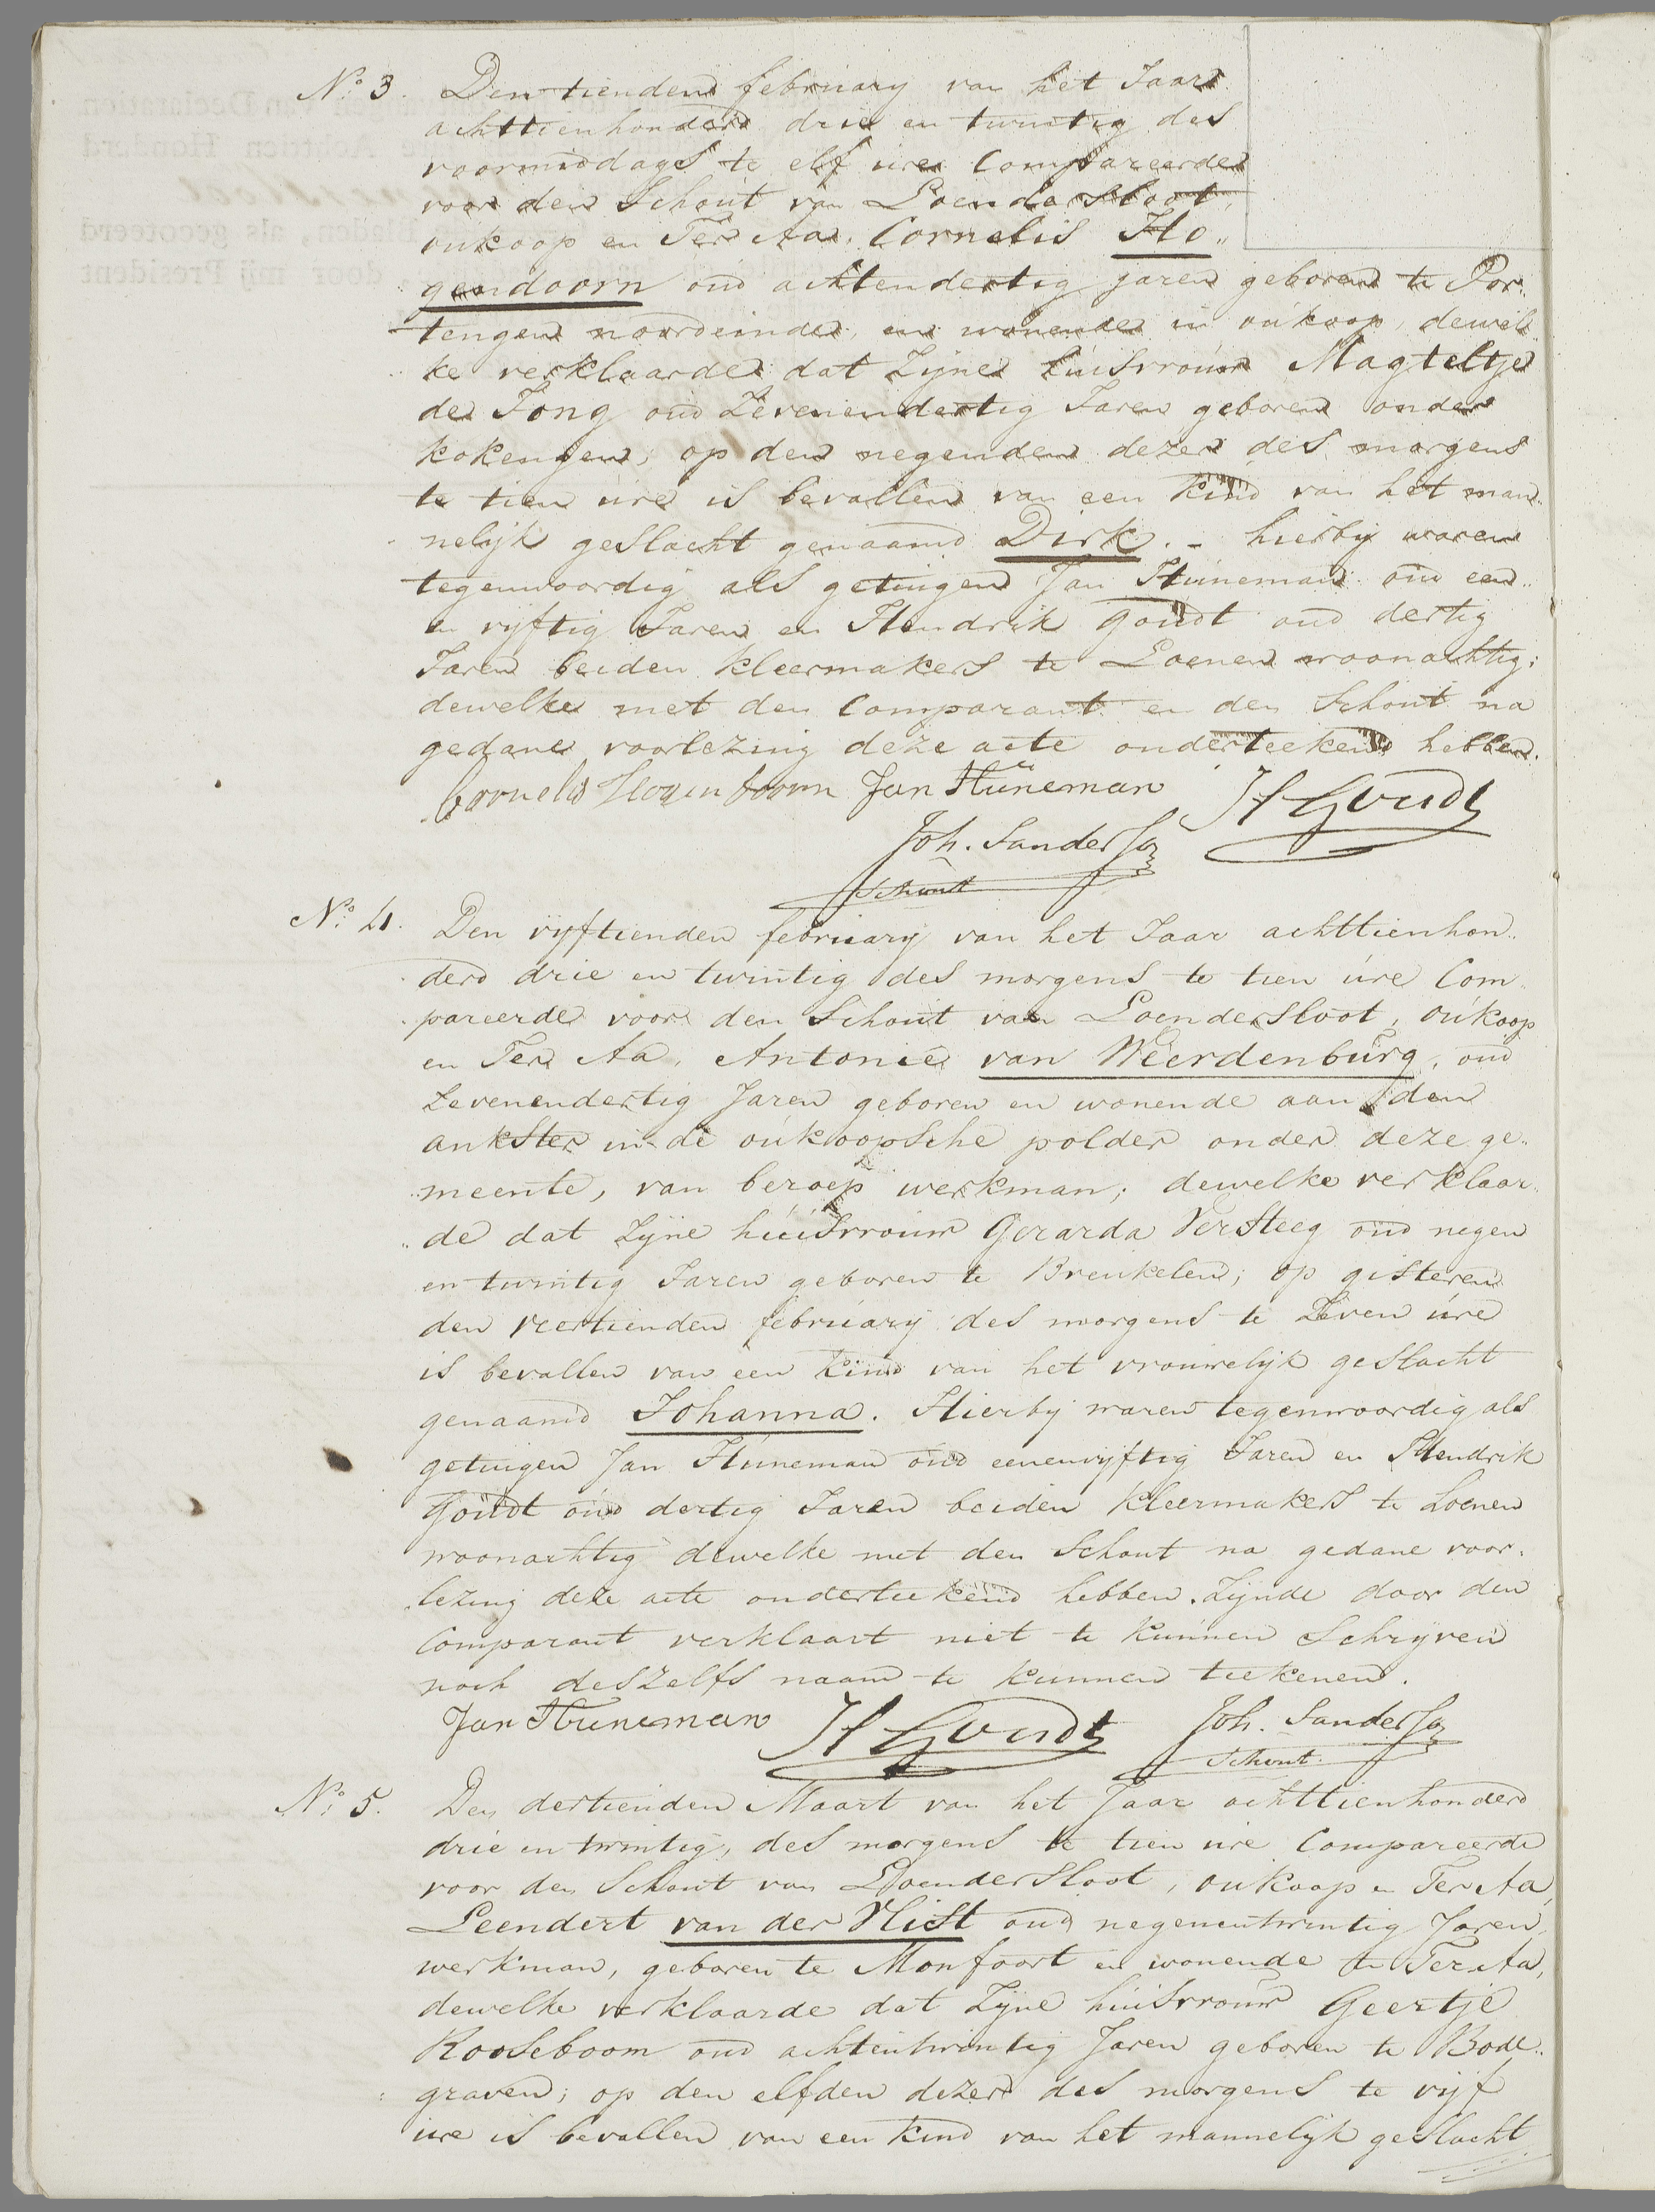 N.o 3. Den tienden february van het Jaar
achttienhonderd drie en twintig des
voormiddags te elf ure Compareerde
voor den Schout van Loendersloot,
oukoop en Ter Aa, Cornelis Ho„
gendoorn oud achtendertig jaren geboren te Por„
tengen noordeinde, en wonende in oukoop, dewel„
ke verklaarde dat Zyne huisvrouw Magteltje
de Jong oud Zevenendertig Jaren geboren onder
kokengen, op den negenden dezer des morgens
te tien ure is bevallen van een kind van het man„
nelyk geslacht genaamd Dirk. - hierby waren
tegenwoordig als getuigen Jan Huneman oud een„
en vyftig Jaren en Hendrik Goudt oud dertig
Jaren beiden kleermakers te Loenen woonachtig;
dewelke met den Comparant en den Schout na
gedane voorlezing deze acte onderteekend hebben.
Cornelis Hogendoorn Jan Hüneman H Goudt
Joh. Sanderson
Schout
N.o 4. Den vyftienden february van het Jaar achttienhon„
derd drie en twintig des morgens te tien ure Com„
pareerde voor den Schout van Loendersloot, oukoop
en Ter Aa, Antonie van Weerdenburg, oud
Zevenendertig Jaren geboren en wonende aan den
ankster in de oukoopsche polder onder deze ge„
meente, van beroep werkman; dewelke verklaar„
de dat Zyne huisvrouw Gerarda Versteeg oud negen
en twintig Jaren geboren te Breukelen; op gisteren
den veertienden february des morgens te Zeven ure
is bevallen van een kind van het vrouwelyk geslacht
genaamd Johanna. Hierby waren tegenwoordig als
getuigen Jan Huneman oud eenenvyftig Jaren en Hendrik
Goudt oud dertig Jaren beiden kleermakers te Loenen
woonachtig dewelke met den Schout na gedane voor„
lezing deze acte onderteekend hebben. Zynde door den
Comparant verklaart niet te kunnen Schryven
noch deszelfs naam te kunnen teekenen.
Jan Huneman H Goudt Joh. Sanderson
Schout.
N.o 5. Den dertienden Maart van het Jaar achttienhonderd
drie en twintig, des morgens te tien ure Compareerde
voor den Schout van Loendersloot, oukoop en Ter Aa,
Leendert van der Vlist oud negenentwintig Jaren,
werkman, geboren te Monfoort en wonende te Ter Aa,
dewelke verklaarde dat Zyne huisvrouw Geertje
Rooseboom oud achtentwintig Jaren geboren te Bode„
graven; op den elfden dezer des morgens te vyf
ure is bevallen van een kind van het mannelyk geslacht